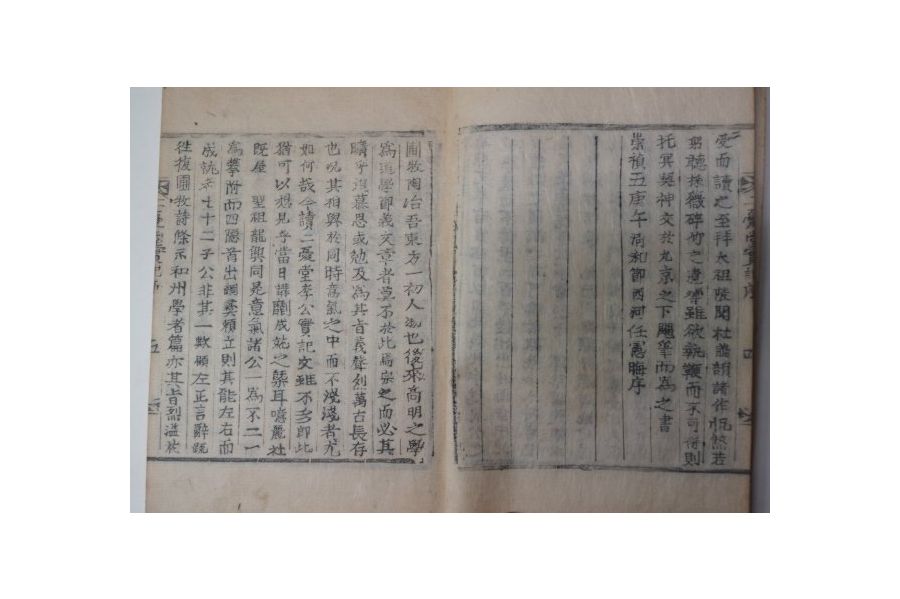 愛而讀之至拜太祖陵聞杜鵑諸作怳然若
躬聽採薇碎竹之遺響雖欲執鞭而不可得則
托冥契神交於九京之下颺筆而爲之書
崇禎五庚午 和節西河任憲晦序
圃牧南冶吾東方一初人 也後來高明之學
爲道學節義文章者莫不於此爲宗之而必其
慕思或勉及爲其 義聲烈萬古長存
也况其相與於同時 氣之中而不淺淺者尤
如何哉今讀二憂堂李公實記文雖不多卽此
猶可以想見乎當日講劘成就之 耳噫麗社
旣屋 聖祖龍興同是意氣諸公一爲不二一
爲攀附而四隱首出綱 賴立則其能左右而
成就 七十二子公非其一歟顧左正言辭疏
往復圃牧詩條示和州學者篇亦其 烈溢於
二憂堂實記序
四
五